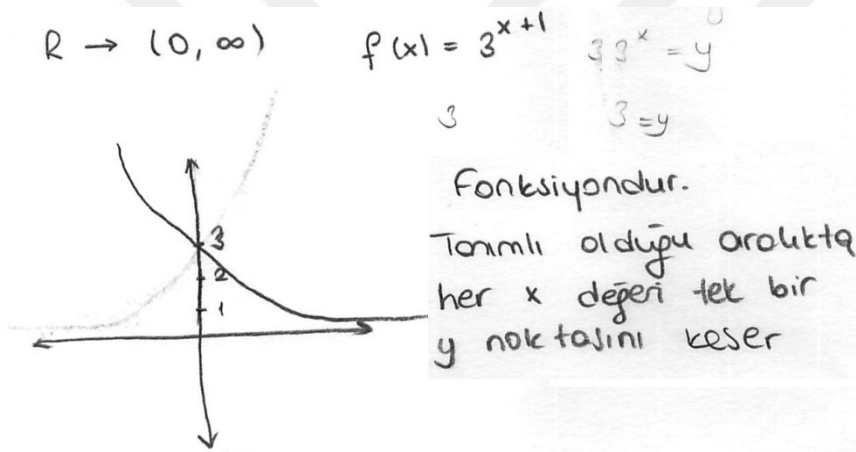 R → (0, ∞) f(x) = 3^{x+1} 3 3^x = y
3 3 = y
Fonksiyondur.
Tanımlı olduğu aralıkta
her x değeri tek bir
y noktasını keser
3
2
1